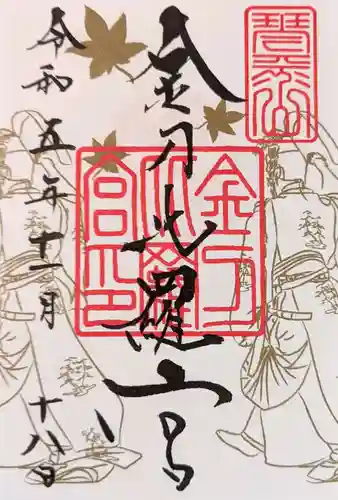 琴平山
金刀比羅宮
金刀比羅宮印
令和五年十一月十八日